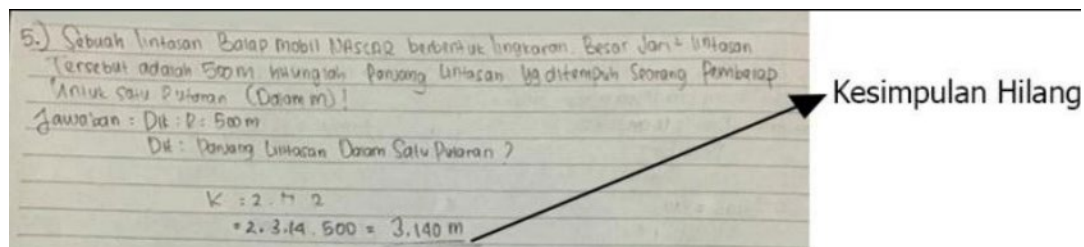 5.) Sebuah lintasan Balap mobil NASCAR berbentuk lingkaran. Besar Jari² lintasan
Tersebut adalah 500m hitunglah Panjang Lintasan yg ditempuh Seorang Pembalap
Untuk Satu Putaran (Dalam m)!
Jawaban = Dik : D = 500 m
Dit : Panjang Lintasan Dalam Satu Putaran ?
K = 2 . π 2
= 2. 3.14 . 500 = 3.140 m
Kesimpulan Hilang